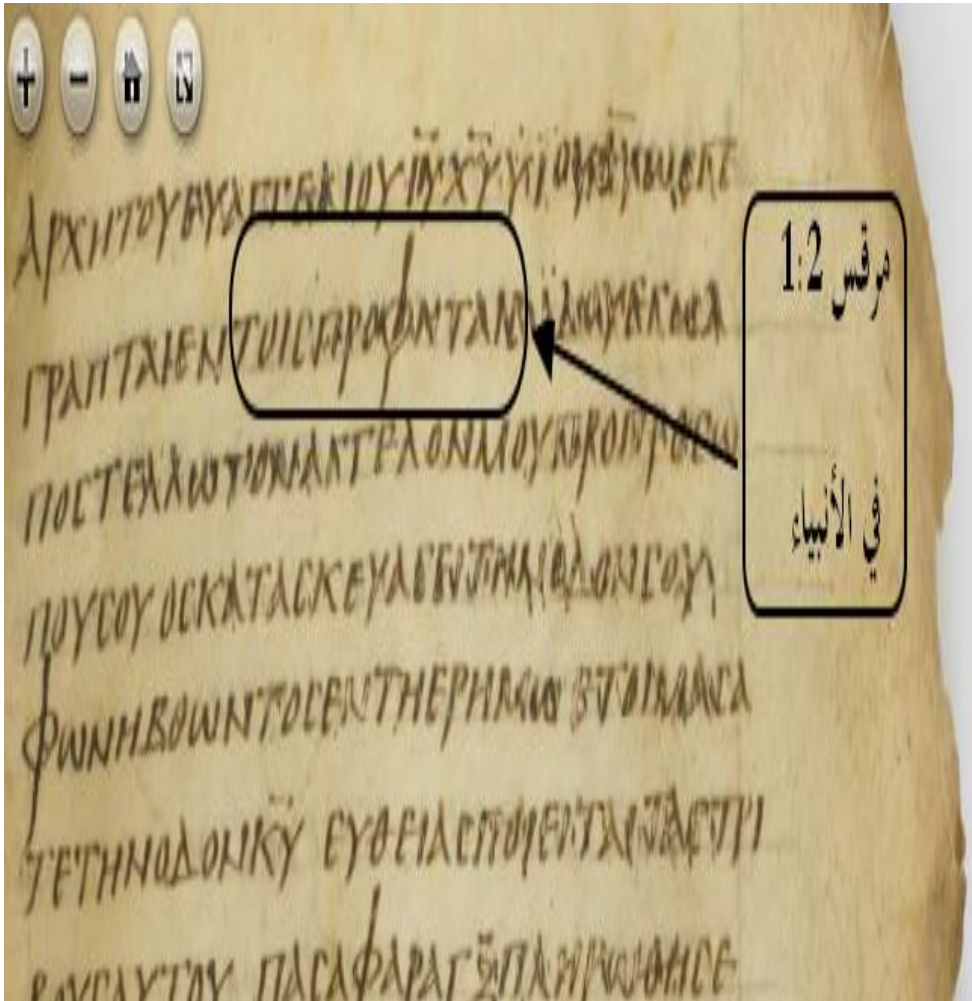 ΑΡΧΗΤΟΥΕΥΑΓΓΕΛΙΟΥ ΙΥ ΧΥ ΥΙΟΥΘΥΩϹΓΕ
ΓΡΑΠΤΑΙΕΝΤΟΙϹΠΡΟΦΗΤΑΙϹ ΙΔΟΥΕΓΩΑ
ΠΟϹΤΕΛΛΩΤΟΝΑΓΓΕΛΟΝΜΟΥΠΡΟΠΡΟϹΩ
ΠΟΥϹΟΥ ΟϹΚΑΤΑϹΚΕΥΑϹΕΙΤΗΝΟΔΟΝϹΟΥ
ΦΩΝΗΒΟΩΝΤΟϹΕΝΤΗΕΡΗΜΩ ΕΤΟΙΜΑϹΑ
ΤΕΤΗΝΟΔΟΝΚΥ ΕΥΘΕΙΑϹΠΟΙΕΙΤΑΙΤΑϹΤΡΙ
ΒΟΥϹΑΥΤΟΥ ΠΑϹΑΦΑΡΑΓΞΠΛΗΡΩΘΗϹΕ
مرقس 1:2
في الأنبياء